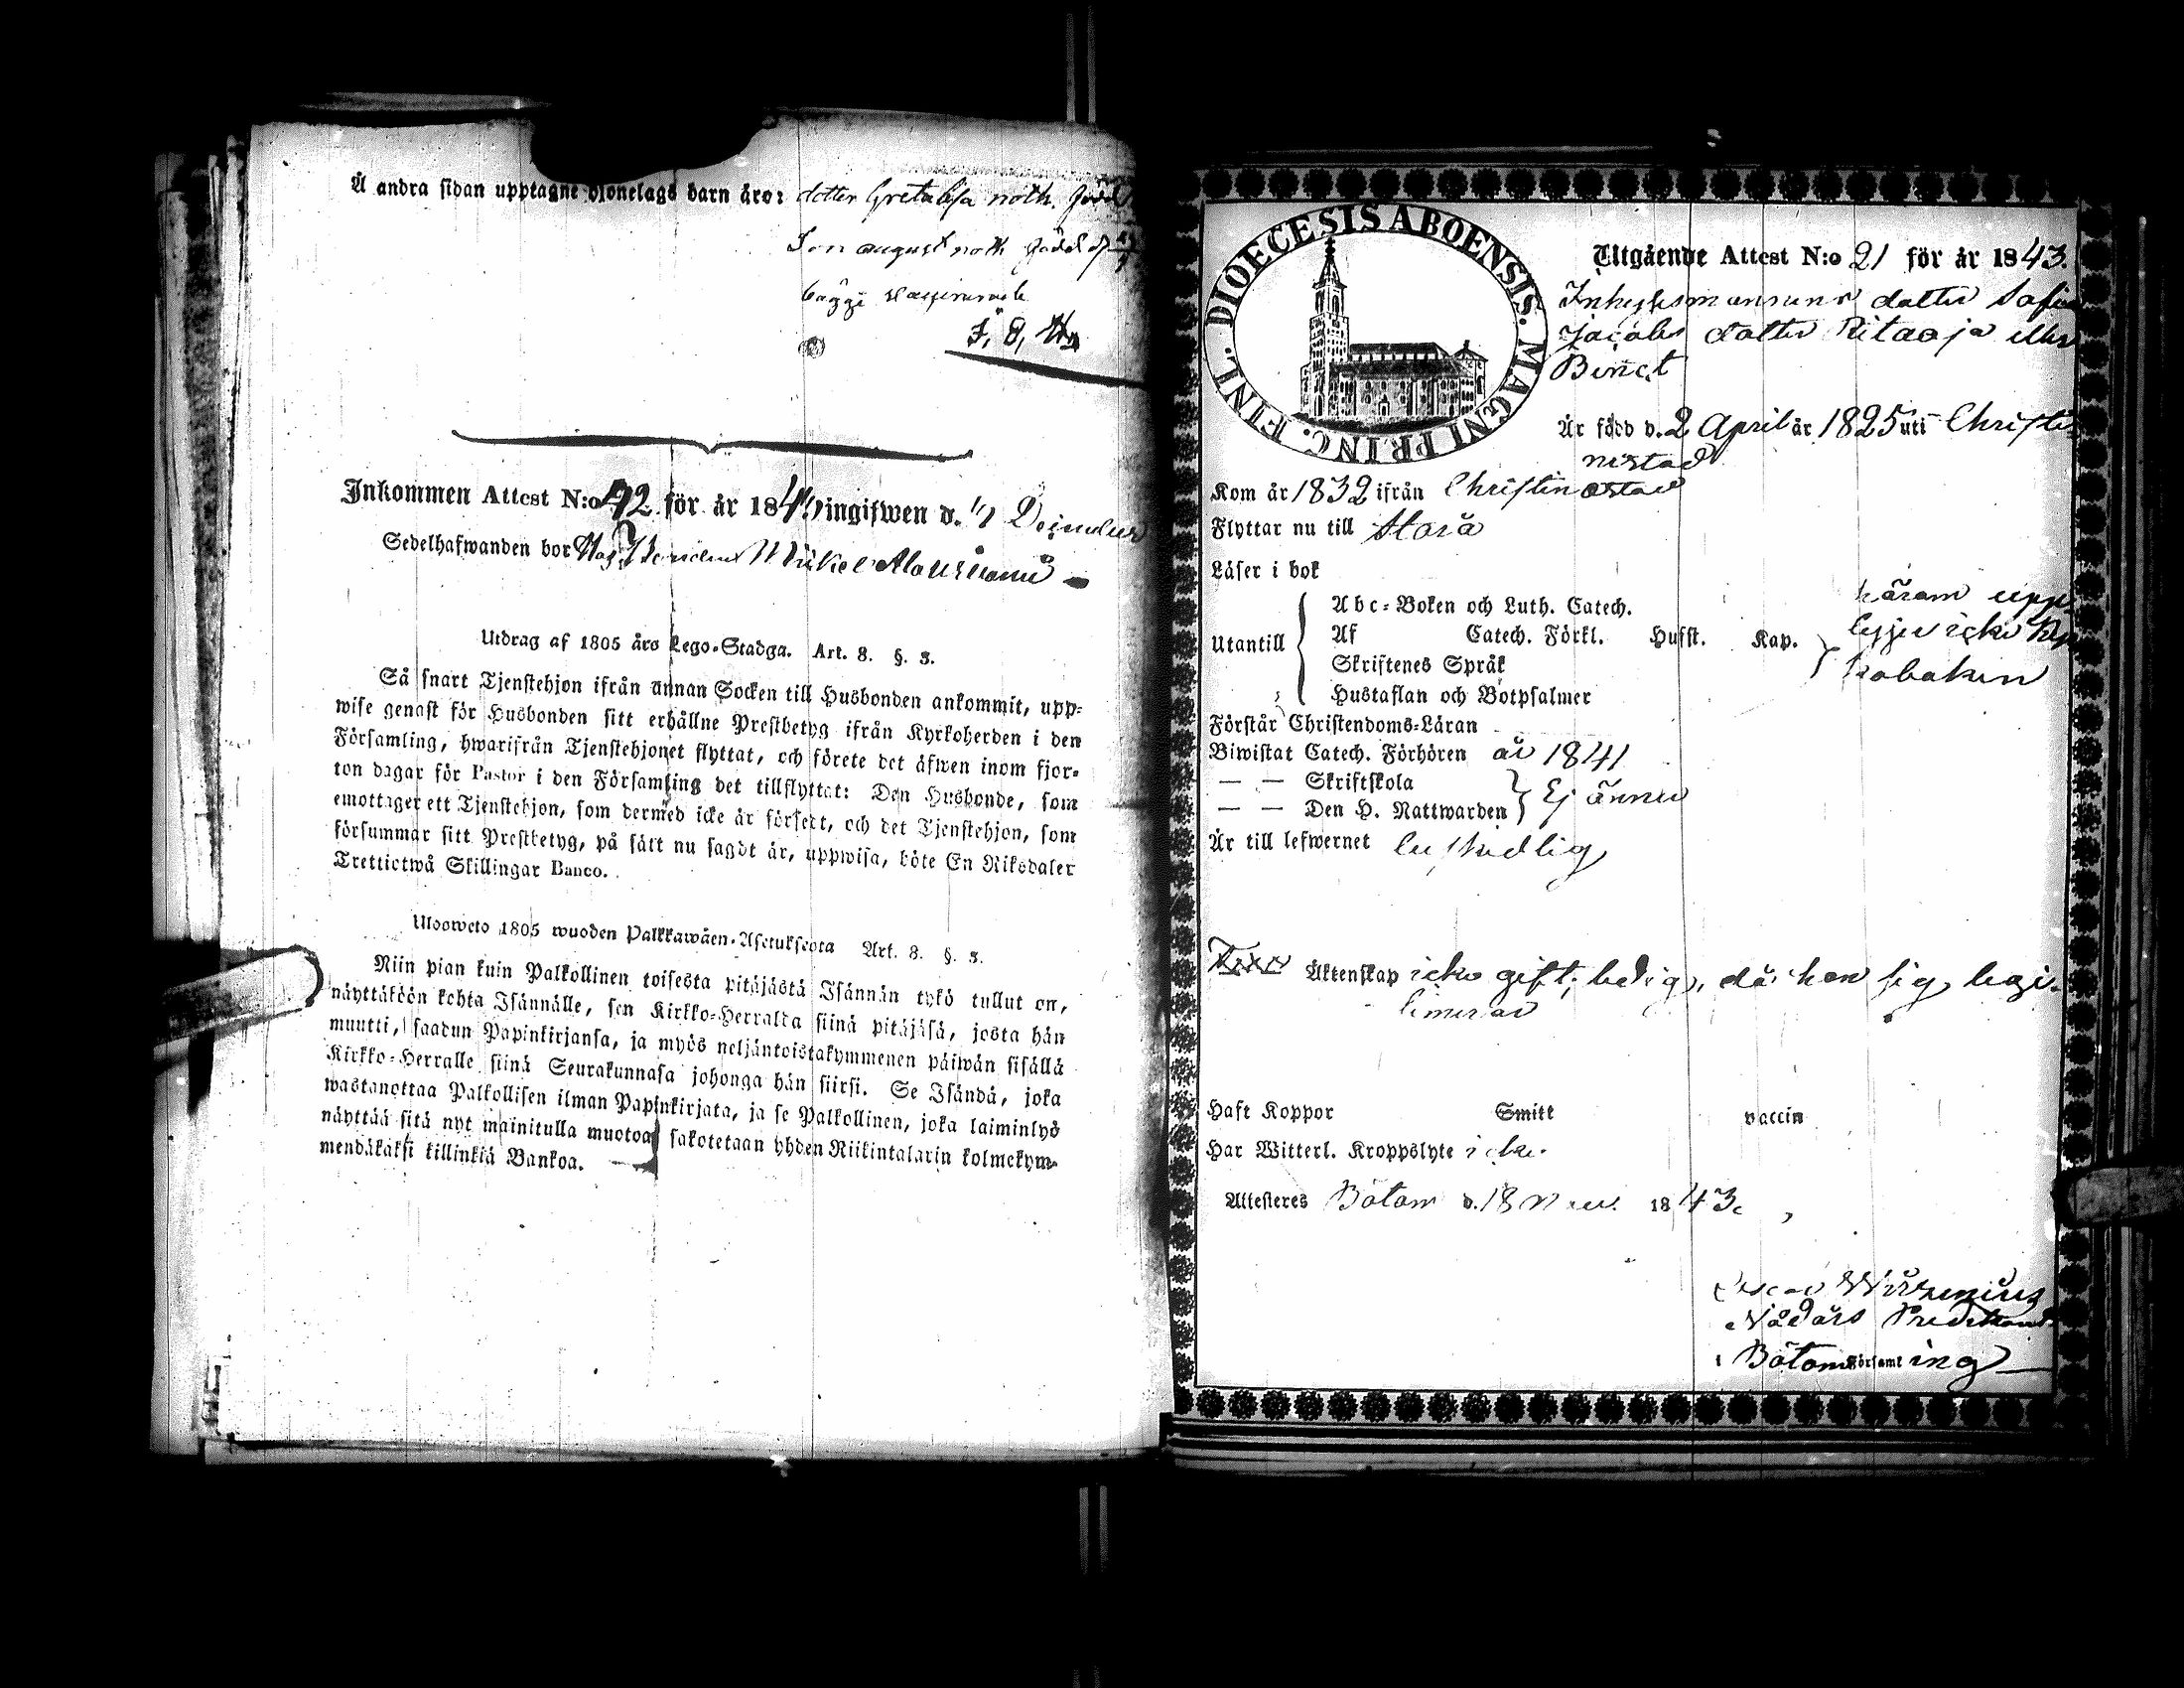 Å andra sidan upptagne hjonelags barn äro: dotter Greta Lisa noth. född
Son august noth född d
bägge vaccinerade
Inkommen Attest N:o 42 för år 184 ingifwen d.
Sedelhafwanden bor Mickel
Utdrag af 1805 års Lego-Stadga. Art. 8. §. 3.
Så snart Tjenstehjon ifrån annan Socken till Husbonden ankommit, upp-
wise genast för Husbonden sitt erhållne Prestbetyg ifrån Kyrkoherden i den
Församling, hwarifrån Tjenstehjonet flyttat, och förete det äfwen inom fjor-
ton dagar för Pastor i den Församling det tillflyttat: Den Husbonde, som
emottager ett Tjenstehjon, som dermed icke är försedt, och det Tjenstehjon, som
försummar sitt Prestbetyg, på sätt nu sagdt är, uppwisa, böte En Riksdaler
Trettiotwå Skillingar Banco.
Ulosweto 1805 wuoden Palkkawäen-Asetuksesta Art. 8. §. 3.
Niin pian kuin Palkollinen toisesta pitäjästä Isännän tykö tullut on,
näyttäköön kohta Isännälle, sen Kirkko-Herralda siinä pitäjäsä, josta hän
muutti, saadun Papinkirjansa, ja myös neljäntoistakymmenen päiwän sisällä
Kirkko-Herralle siinä Seurakunnasa johonga hän siirsi. Se Isändä, joka
wastanottaa Palkollisen ilman Papinkirjata, ja se Palkollinen, joka laiminlyö
näyttää sitä nyt mainitulla muotoa, sakotetaan yhden Riikintalarin kolmekym-
mendäkaksi killinkiä Bankoa.
DIOECESIS ABOENSIS. MAGNI PRINC. FINL.
Utgående Attest N:o 21 för år 1843.
Inhysesmannens dotter Sofia
Jacobs dotter Ritaoja eller
Är född d. 2 April år 1825 uti Christi
nestad
Kom år 1832 ifrån Christinestad
Flyttar nu till Storå
Läser i bok
Abc-Boken och Luth. Catech.
Utantill Af Catech. Förkl. Husst. Kap.
Skriftenes Språk
Hustaflan och Botpsalmer
Förstår Christendoms-Läran
Biwistat Catech. Förhören år 1841
— — Skriftskola
— — Den H. Nattwarden Ej ännu
Är till lefwernet beskedlig
Äktenskap icke gift; ledig, då hon sig legi-
timerar
Haft Koppor Smitt vaccin
Har Witterl. Kroppslyte icke.
Attesteres Bötom d. 18 Nov. 1843.
Wirzenius
Nådårs Predikant
i Bötoms Församling